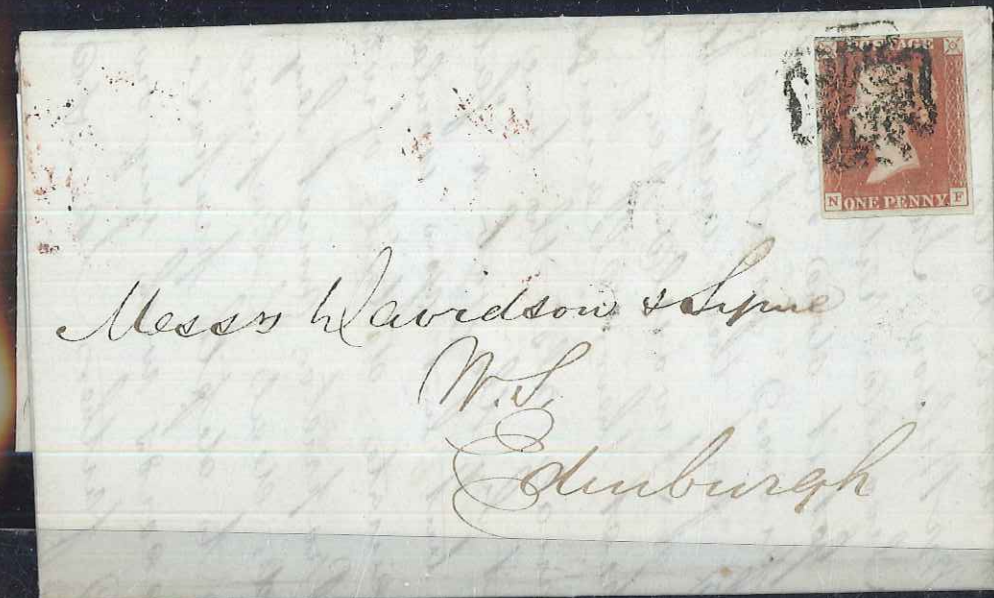 POSTAGE
N ONE PENNY F
Messrs Davidson & Syme
W.S.
Edinburgh